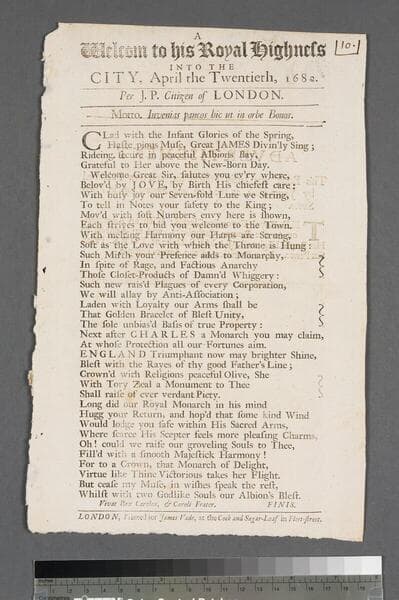 A
Welcom to his Royal Highneſs
10.
INTO THE
CITY, April the Twentieth, 1682.
Per J. P. Citizen of LONDON.
Motto. Invenias paucos hic ut in orbe Bonos.
CLad with the Infant Glories of the Spring,
Haſte pious Muſe, Great JAMES Divin'ly Sing;
Rideing ſecure in peaceful Albions Bay,
Grateful to Her above the New-Born Day.
Welcome Great Sir, ſalutes you ev'ry where,
Belov'd by JOVE, by Birth His chiefeſt care;
With buſy joy our Seven-fold Lute we String,
To tell in Notes your ſafety to the King;
Mov'd with ſoft Numbers envy here is ſhown,
Each ſtrives to bid you welcome to the Town.
With melting Harmony our Harps are Strung,
Soft as the Love with which the Throne is Hung:
Such Mirth your Preſence adds to Monarchy,
In ſpite of Rage, and Factious Anarchy
Thoſe Cloſet-Products of Damn'd Whiggery:
Such new rais'd Plagues of every Corporation,
We will allay by Anti-Aſſociation;
Laden with Loyalty our Arms ſhall be
That Golden Bracelet of Bleſt Unity,
The ſole unbias'd Baſis of true Property:
Next after CHARLES a Monarch you may claim,
At whoſe Protection all our Fortunes aim.
ENGLAND Triumphant now may brighter Shine,
Bleſt with the Rayes of thy good Father's Line;
Crown'd with Religions peaceful Olive, She
With Tory Zeal a Monument to Thee
Shall raiſe of ever verdant Piety.
Long did our Royal Monarch in his mind
Hugg your Return, and hop'd that ſome kind Wind
Would lodge you ſafe within His Sacred Arms,
Where ſcarce His Scepter feels more pleaſing Charms.
Oh! could we raiſe our groveling Souls to Thee,
Fill'd with a ſmooth Majeſtick Harmony!
For to a Crown, that Monarch of Delight,
Virtue like Thine Victorious takes her Flight.
But ceaſe my Muſe, in wiſhes ſpeak the reſt,
Whilſt with two Godlike Souls our Albion's Bleſt.
Vivat Rex Carolus, & Caroli Frater.
FINIS.
LONDON, Printed for James Vade, at the Cock and Sugar-Loaf in Fleet-ſtreet.